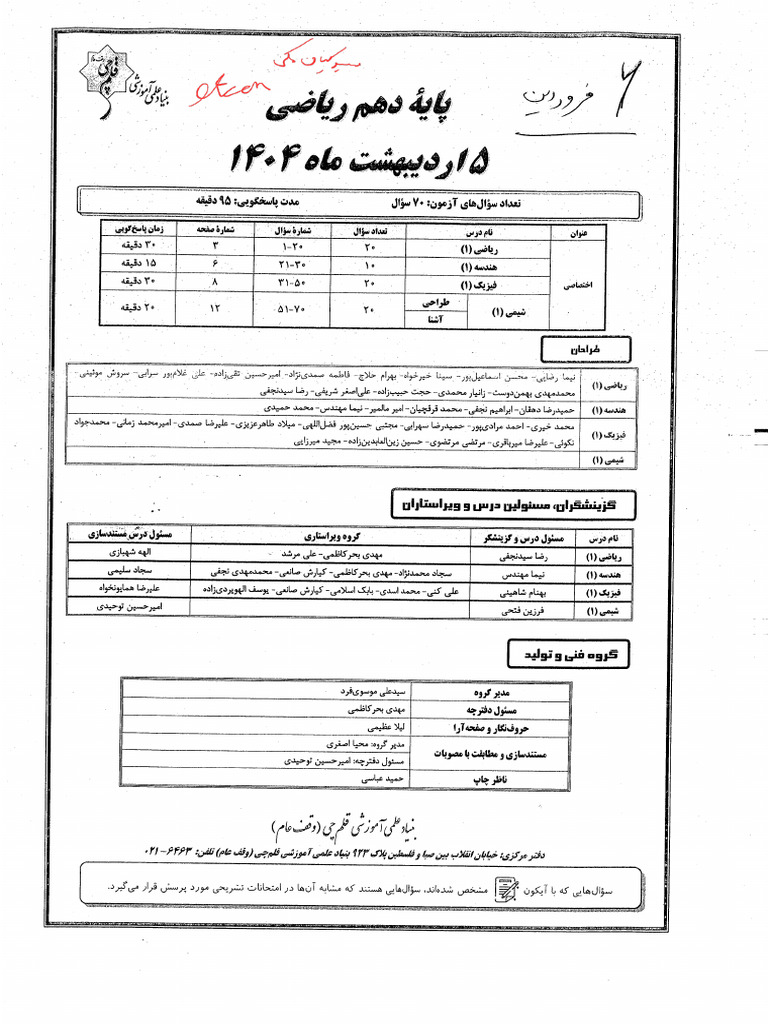 فروردین
قلم چی
بنیاد علمی آموزشی
پایهٔ دهم ریاضی
۵ اردیبهشت ماه ۱۴۰۴
تعداد سؤال‌های آزمون: ۷۰ سؤال مدت پاسخگویی: ۹۵ دقیقه
عنوان نام درس تعداد سؤال شمارهٔ سؤال شمارهٔ صفحه زمان پاسخ‌گویی
اختصاصی
ریاضی (۱) ۲۰ ۱-۲۰ ۳ ۳۰ دقیقه
هندسه (۱) ۱۰ ۲۱-۳۰ ۶ ۱۵ دقیقه
فیزیک (۱) ۲۰ ۳۱-۵۰ ۸ ۳۰ دقیقه
شیمی (۱) طراحی آشنا ۲۰ ۵۱-۷۰ ۱۲ ۲۰ دقیقه
طراحان
ریاضی (۱) نیما رضایی- محسن اسماعیل‌پور- سینا خیرخواه- بهرام حلاج- فاطمه صمدی‌نژاد- امیرحسین تقی‌زاده- علی غلام‌پور سرابی- سروش موئینی-
محمدمهدی بهمن‌دوست- زانیار محمدی- حجت حبیب‌زاده- علی‌اصغر شریفی- رضا سیدنجفی
هندسه (۱) حمیدرضا دهقان- ابراهیم نجفی- محمد قرقچیان- امیر مالمیر- نیما مهندس- محمد حمیدی
فیزیک (۱) محمد خیری- احمد مرادی‌پور- حمیدرضا سهرابی- مجتبی حسین‌پور فضل‌اللهی- میلاد طاهرعزیزی- علیرضا صمدی- امیرمحمد زمانی- محمدجواد
نکوئی- علیرضا میرباقری- مرتضی مرتضوی- حسین زین‌العابدین‌زاده- مجید میرزایی
شیمی (۱)
گزینشگران، مسئولین درس و ویراستاران
نام درس مسئول درس و گزینشگر گروه ویراستاری مسئول درس مستندسازی
ریاضی (۱) رضا سیدنجفی مهدی بحرکاظمی- علی مرشد الهه شهبازی
هندسه (۱) نیما مهندس سجاد محمدنژاد- مهدی بحرکاظمی- کیارش صانعی- محمدمهدی نجفی سجاد سلیمی
فیزیک (۱) بهنام شاهینی علی کنی- محمد اسدی- بابک اسلامی- کیارش صانعی- یوسف الهویردی‌زاده علیرضا همایونخواه
شیمی (۱) فرزین فتحی امیرحسین توحیدی
گروه فنی و تولید
مدیر گروه سیدعلی موسوی‌فرد
مسئول دفترچه مهدی بحرکاظمی
حروف‌نگار و صفحه‌آرا لیلا عظیمی
مستندسازی و مطابقت با مصوبات مدیر گروه: محیا اصغری
مسئول دفترچه: امیرحسین توحیدی
ناظر چاپ حمید عباسی
بنیاد علمی آموزشی قلم‌چی (وقف عام)
دفتر مرکزی: خیابان انقلاب بین صبا و فلسطین پلاک ۹۲۳ بنیاد علمی آموزشی قلم‌چی (وقف عام) تلفن: ۶۴۶۳-۰۲۱
سؤال‌هایی که با آیکون مشخص شده‌اند، سؤال‌هایی هستند که مشابه آن‌ها در امتحانات تشریحی مورد پرسش قرار می‌گیرد.